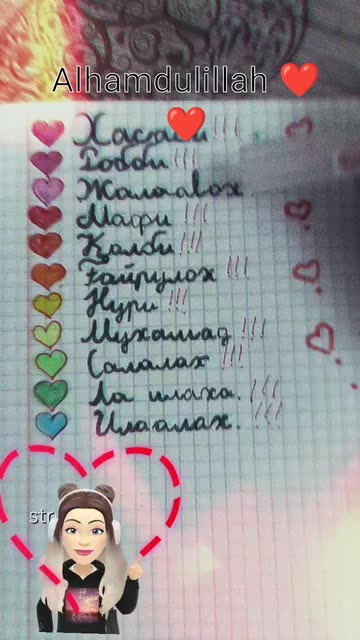 Alhamdulillah ❤️
Хасбии !!!
Робби !!!
Жалаавох
Мафи !!!
Қалби !!!
Ғайрулох !!!
Нури !!!
Мухаммад !!!
Салалах !!!
Ла илаха. !!!
Илаалах. !!!
str